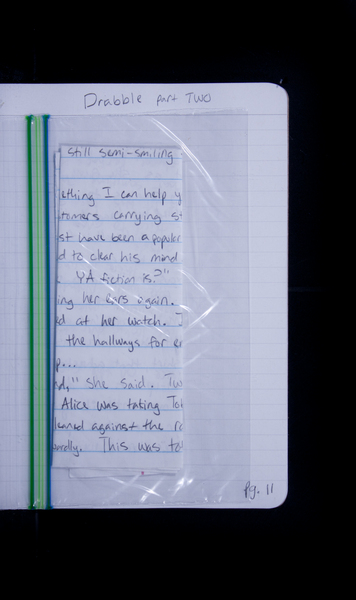 Drabble part Two
still semi-smiling
ething I can help y
tomers carrying s
st have been a popular
d to clear his mind
YA fiction is?"
ing her ears again.
ed at her watch. I
the hallways for er
p...
nd," she said. Tw
Alice was taking To
leaned against the ro
wardly. This was to
Pg. 11